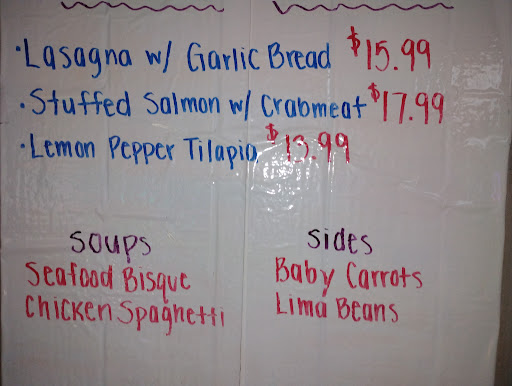 ·Lasagna w/ Garlic Bread $15.99
·Stuffed Salmon w/ Crabmeat $17.99
·Lemon Pepper Tilapia $13.99
Soups
Seafood Bisque
Chicken Spaghetti
Sides
Baby Carrots
Lima Beans